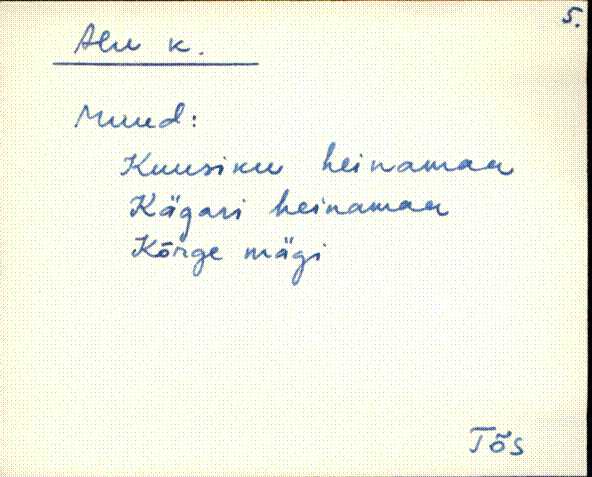 5.
Alu k.
Muud:
Kuusiku heinamaa
Kägari heinamaa
Kõrge mägi
Tõs